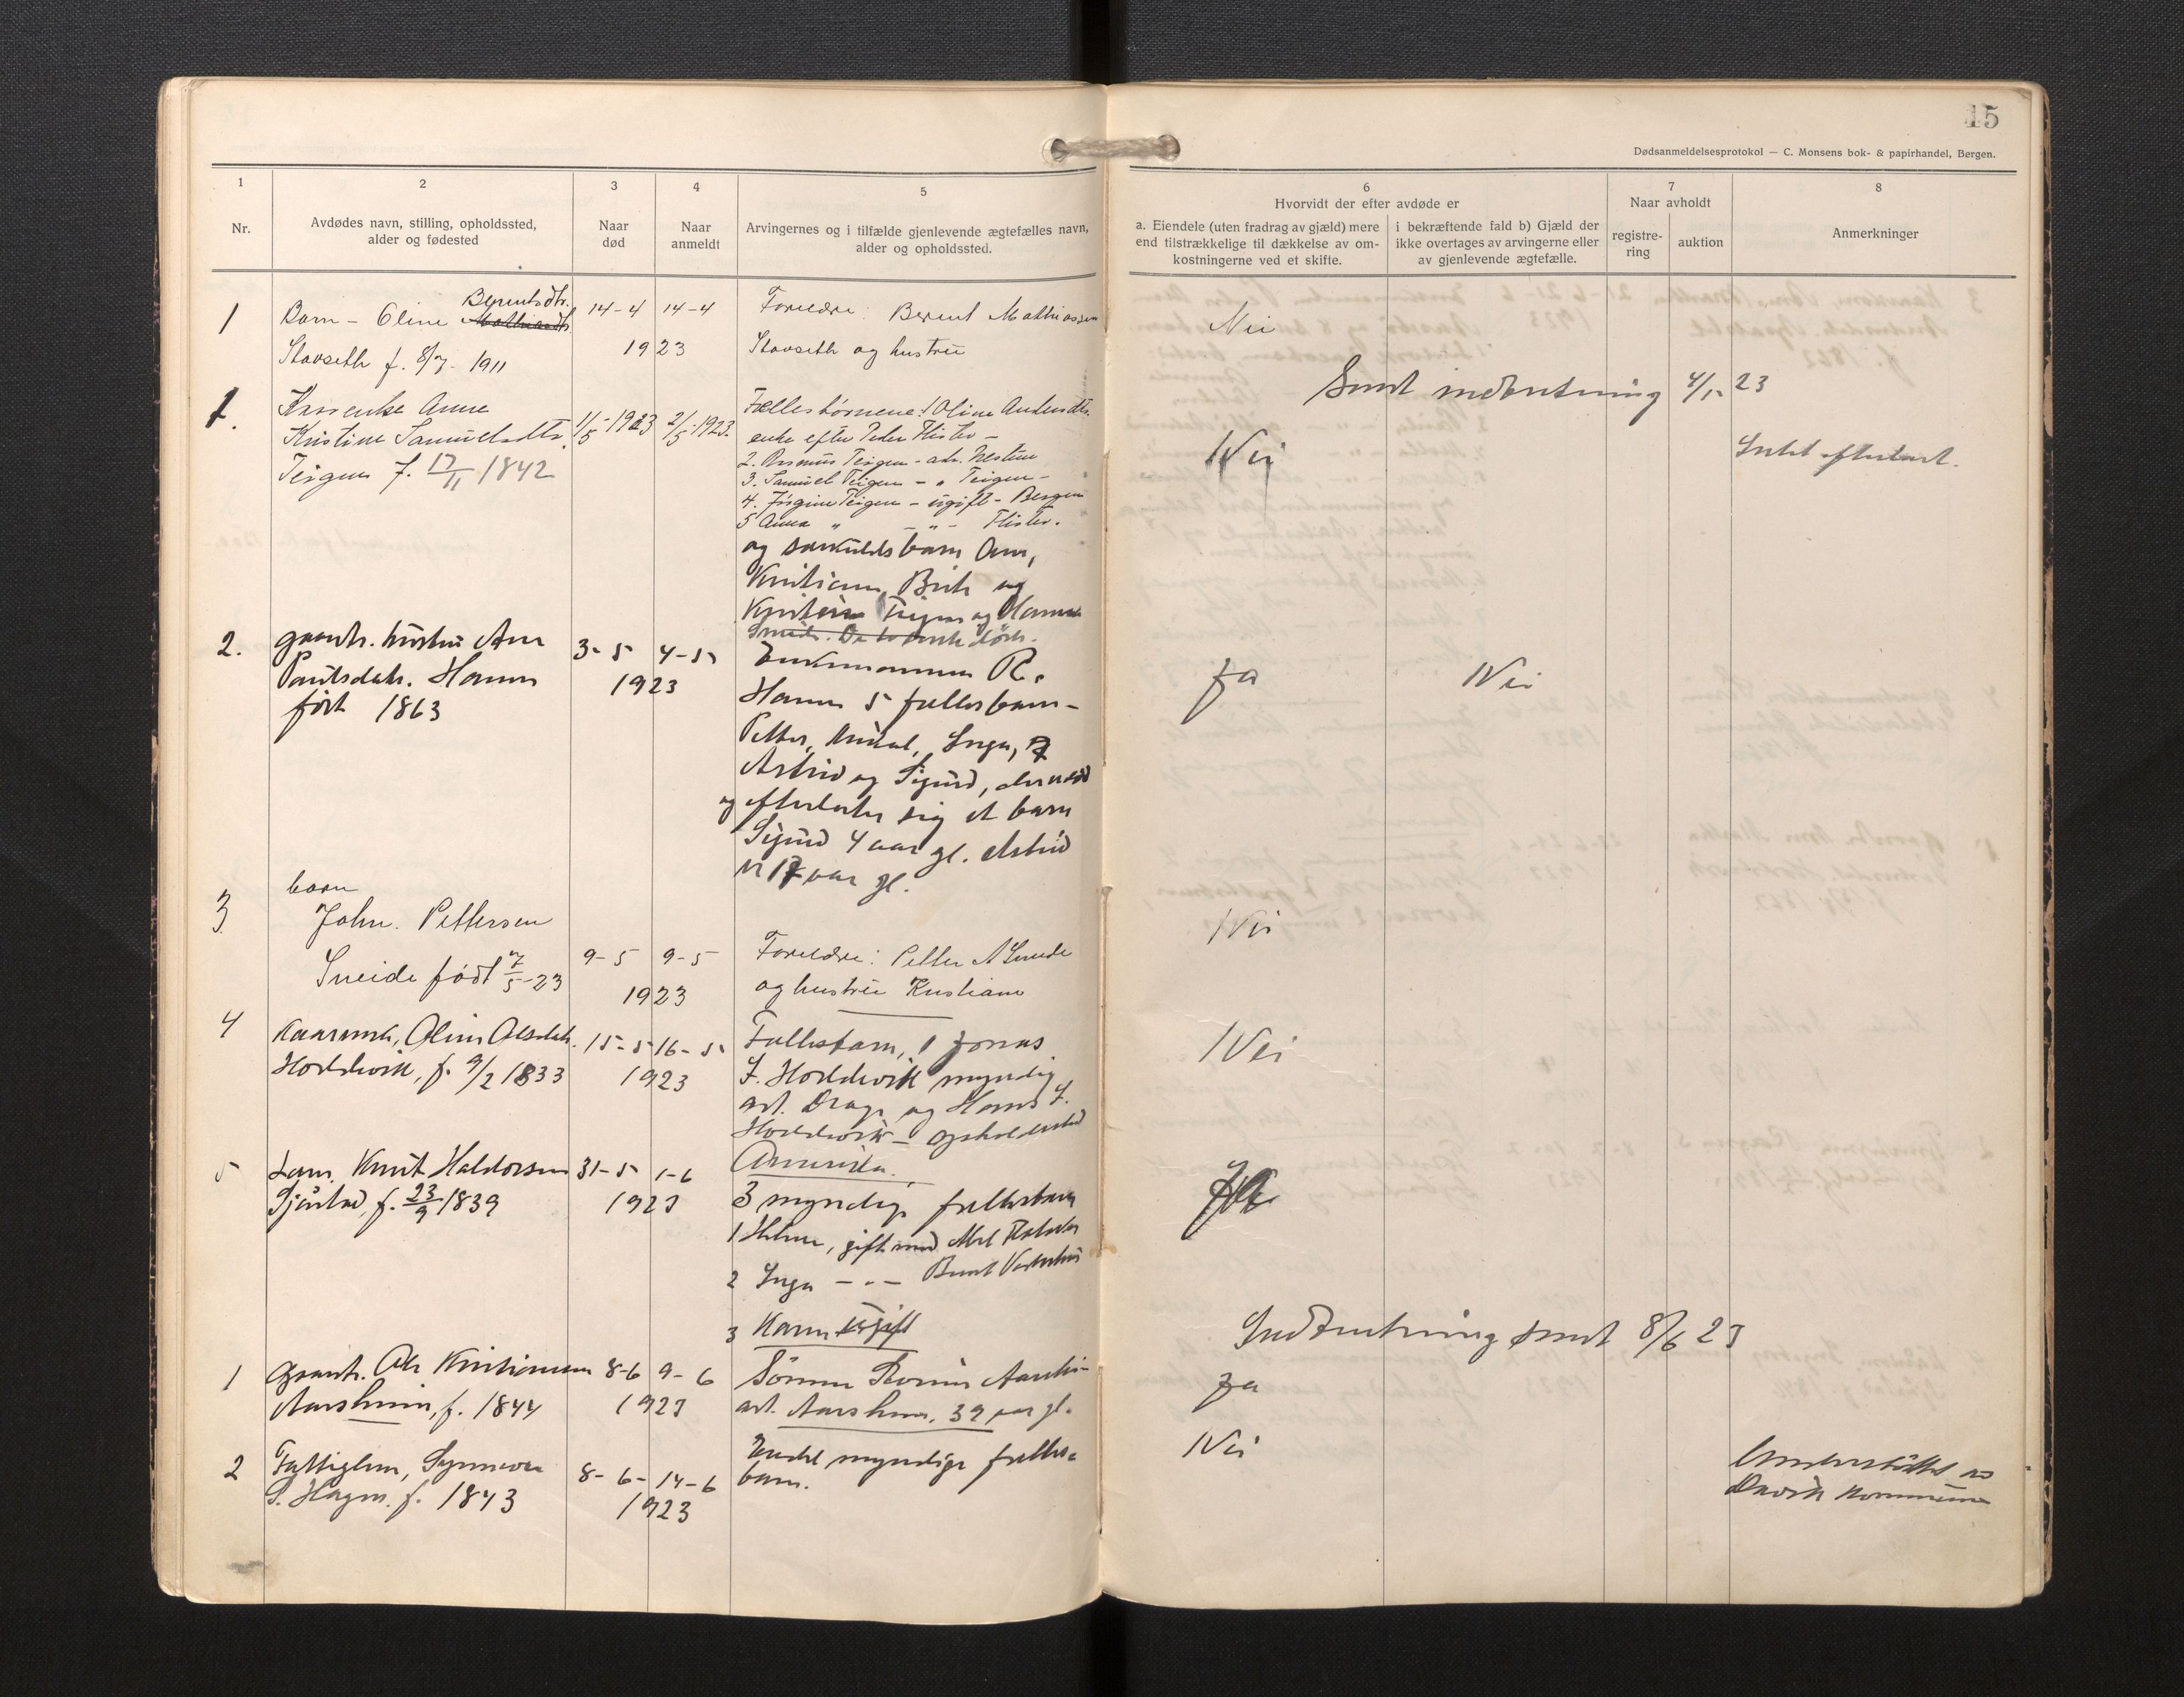 15
Dødsanmeldelsesprotokol — C. Monsens bok- & papirhandel, Bergen.
1
Nr.
2
Avdødes navn, stilling, opholdssted,
alder og fødested
3
Naar
død
4
Naar
anmeldt
5
Arvingernes og i tilfælde gjenlevende ægtefælles navn,
alder og opholdssted.
6
Hvorvidt der efter avdøde er
a. Eiendele (uten fradrag av gjæld) mere
end tilstrækkelige til dækkelse av om-
kostningerne ved et skifte.
i bekræftende fald b) Gjæld der
ikke overtages av arvingerne eller
av gjenlevende ægtefælle.
7
Naar avholdt
registre-
ring
auktion
8
Anmerkninger
Berentsdtr.
1 Barn - Oline 14-4 14-4 Forældre: Berent Mathiassen Nei
Stavseth f. 8/7- 1911 1923 Stavseth og hustru
Sendt indberetning 4/5 23
1. Kaarenke Anne Fællesbørnene: 1 Oline Andersdtr.
Kristine Samuelsdtr. 1/5-1923 2/5-1923. enke efter Peder Flister - Nei Intet efterladt.
Teigen f. 17/11 1842 2. Rasmus Teigen - adr. Nestun
3. Samuel Teigen - " Teigen -
4. Jørgine Teigen - ugift - Bergen
5 Anna " - " - Flister.
og særkuldsbarn Ane,
Kristiane, Brite og
Teigen og Hanna
2. gaardbr. hustru Ane 3-5 4-5 Enkemannen R. Ja Nei
Paulsdatr. Hamn 1923 Hamn 5 fællesbarn -
født 1863 Petter, Mikal, Inga,
Astrid og Sigurd,
og efterlater sig et barn
Sigurd 4 aar gl. Astrid
er 17 aar gl.
3. barn
John. Pettersen Nei
Sneide født 7/5-23 9-5 9-5 Forældre: Petter A Sneide
1923 og hustru Kristiane
4 Kaarenke, Oline Olsdatr. 15-5 16-5 Fællesbarn, 1 Jonas Nei
Hordevik, f. 9/2 1833 1923 J. Hordevik myndig
Hans J.
Hordevik - opholdssted
Amerika.
5 Knut Haldorsen 31-5 1-6 Ja
f. 23/9 1839 1923 3 myndige fællesbarn
1 Helene, gift med
2 Inga - " - Berent
3 Karen Ugift
Indberetning sendt 8/6 23
1 gaardbr. Ole Kristiansen 8-6 9-6 Sønnen Ja
Aarsheim, f. 1844 1923 Aarsheim. 39 aar gl.
2 Fattiglem, Synneva 8-6- 14-6 Endel myndige fælles- Nei Understøttet av
S. Hagen. f. 1843 1923 barn. Davik kommune